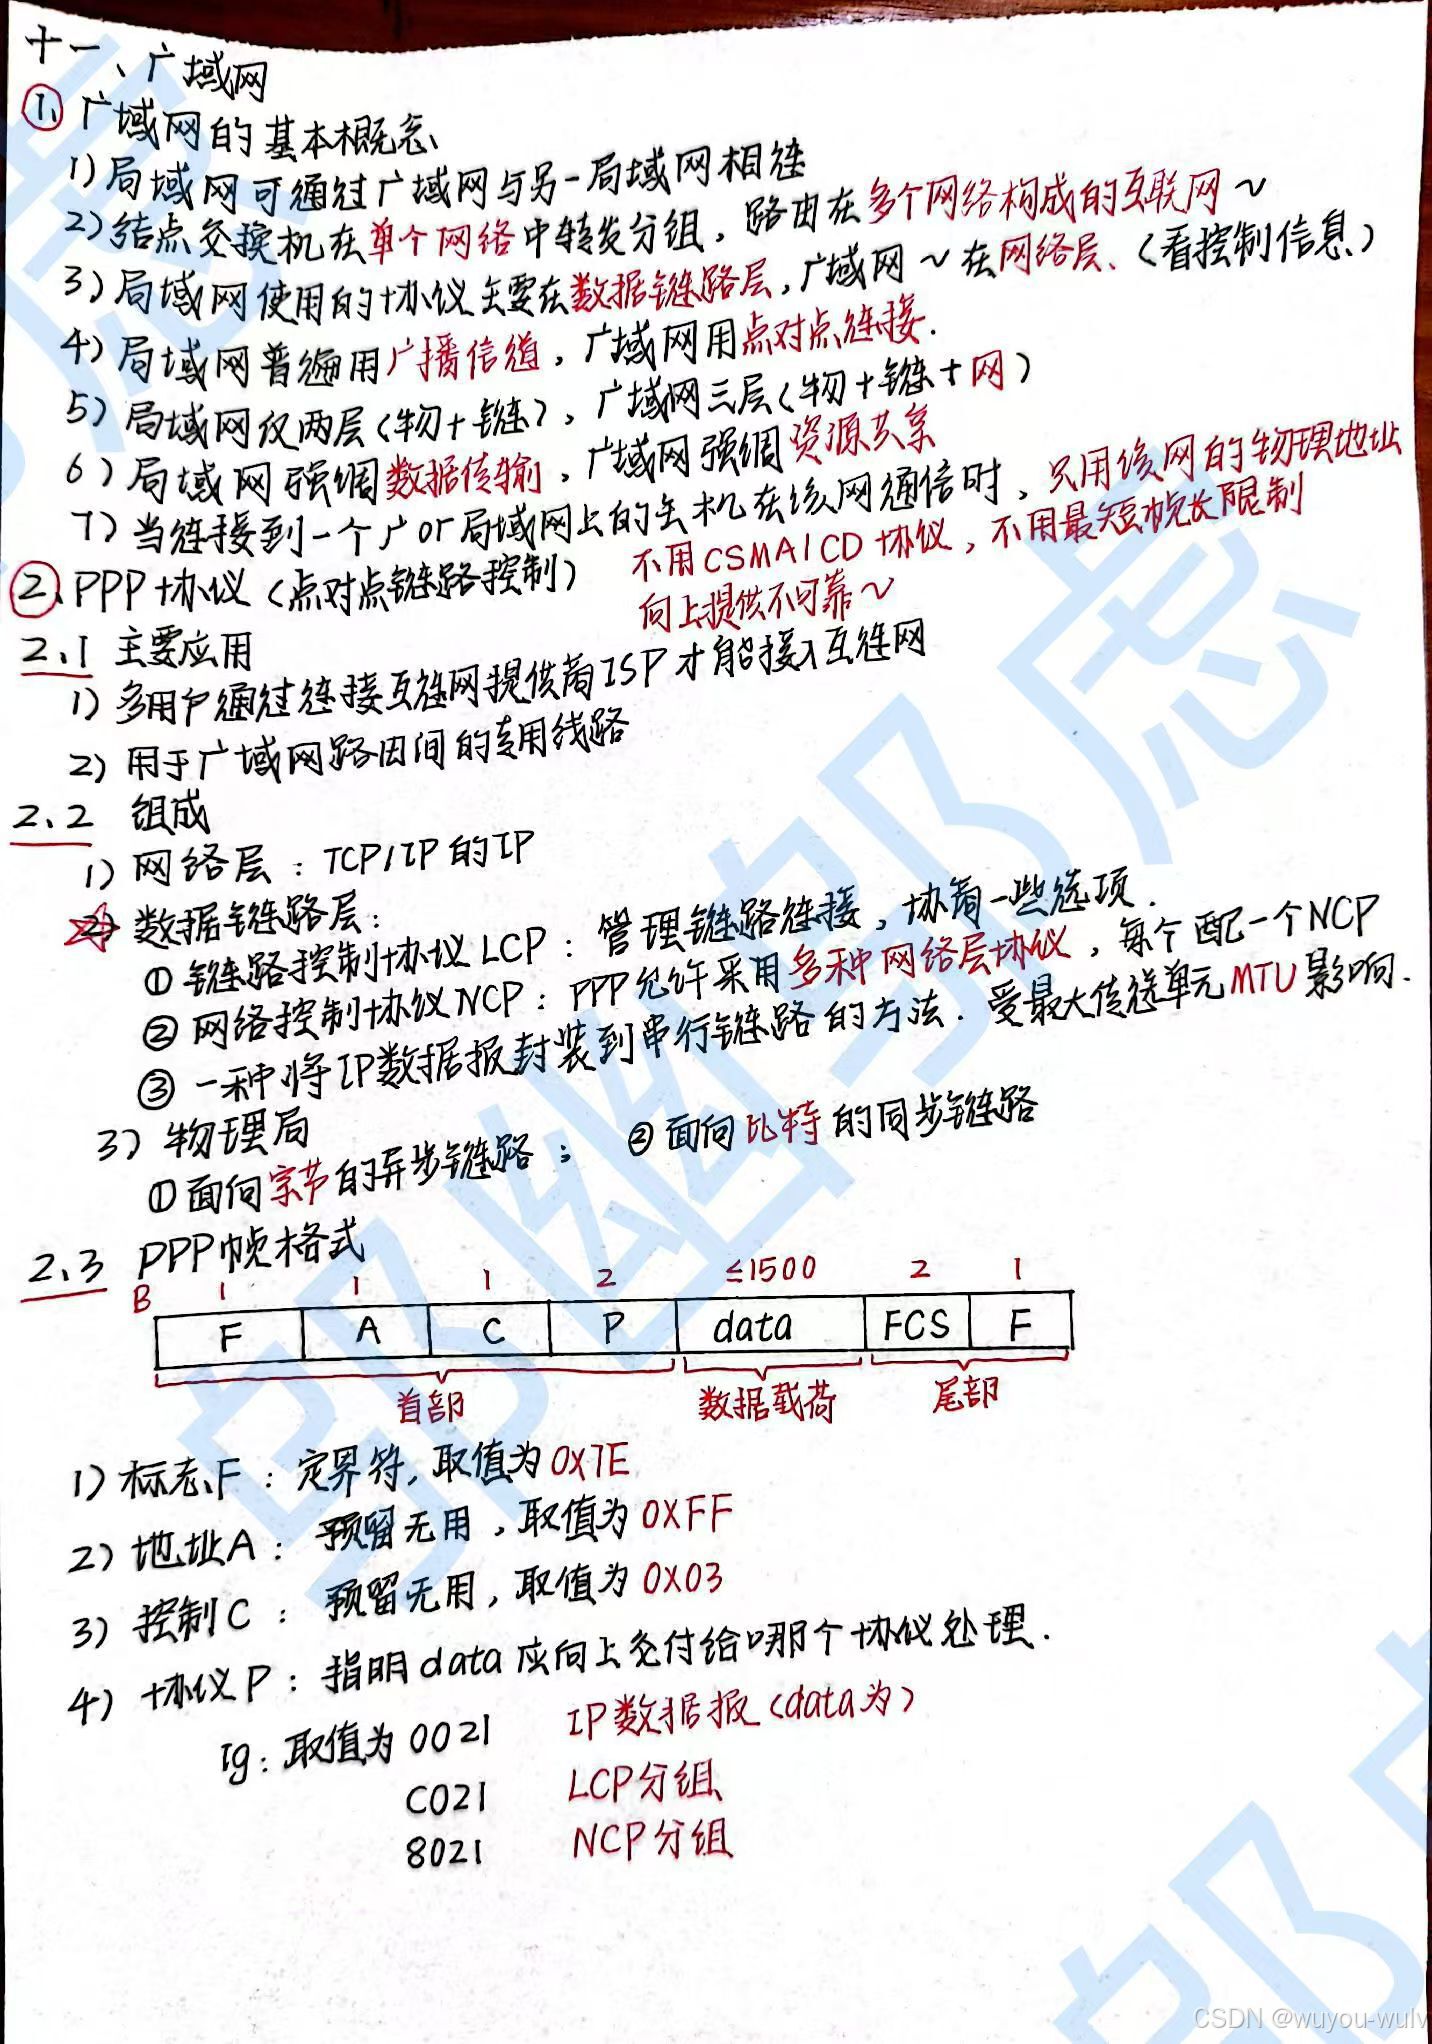 十一、广域网
①、广域网的基本概念
1) 局域网可通过广域网与另一局域网相连
2) 结点交换机在单个网络中转发分组，路由在多个网络构成的互联网~
3) 局域网使用的协议主要在数据链路层，广域网~在网络层、（看控制信息）
4) 局域网普遍用广播信道，广域网用点对点连接.
5) 局域网仅两层（物+链），广域网三层（物+链+网）
6) 局域网强调数据传输，广域网强调资源共享
7) 当连接到一个广or局域网上的主机在该网通信时，只用该网的物理地址
②、PPP协议（点对点链路控制） 不用CSMA/CD协议，不用最短帧长限制
向上提供不可靠~
2.1 主要应用
1) 多用户通过连接互连网提供商ISP才能接入互连网
2) 用于广域网路由间的专用线路
2.2 组成
1) 网络层：TCP/IP的IP
2) 数据链路层：
① 链路控制协议LCP：管理链路连接，协商一些选项.
② 网络控制协议NCP：PPP允许采用多种网络层协议，每个配一个NCP
③ 一种将IP数据报封装到串行链路的方法. 受最大传送单元MTU影响.
3) 物理局
①面向字节的异步链路； ②面向比特的同步链路
2.3 PPP帧格式
B 1 1 1 2 ≤1500 2 1
F A C P data FCS F
首部 数据载荷 尾部
1) 标志F：定界符，取值为0X7E
2) 地址A：预留无用，取值为0XFF
3) 控制C：预留无用，取值为0X03
4) 协议P：指明data应向上交付给哪个协议处理.
Ig：取值为0021 IP数据报（data为）
C021 LCP分组
8021 NCP分组
CSDN @wuyou-wulv